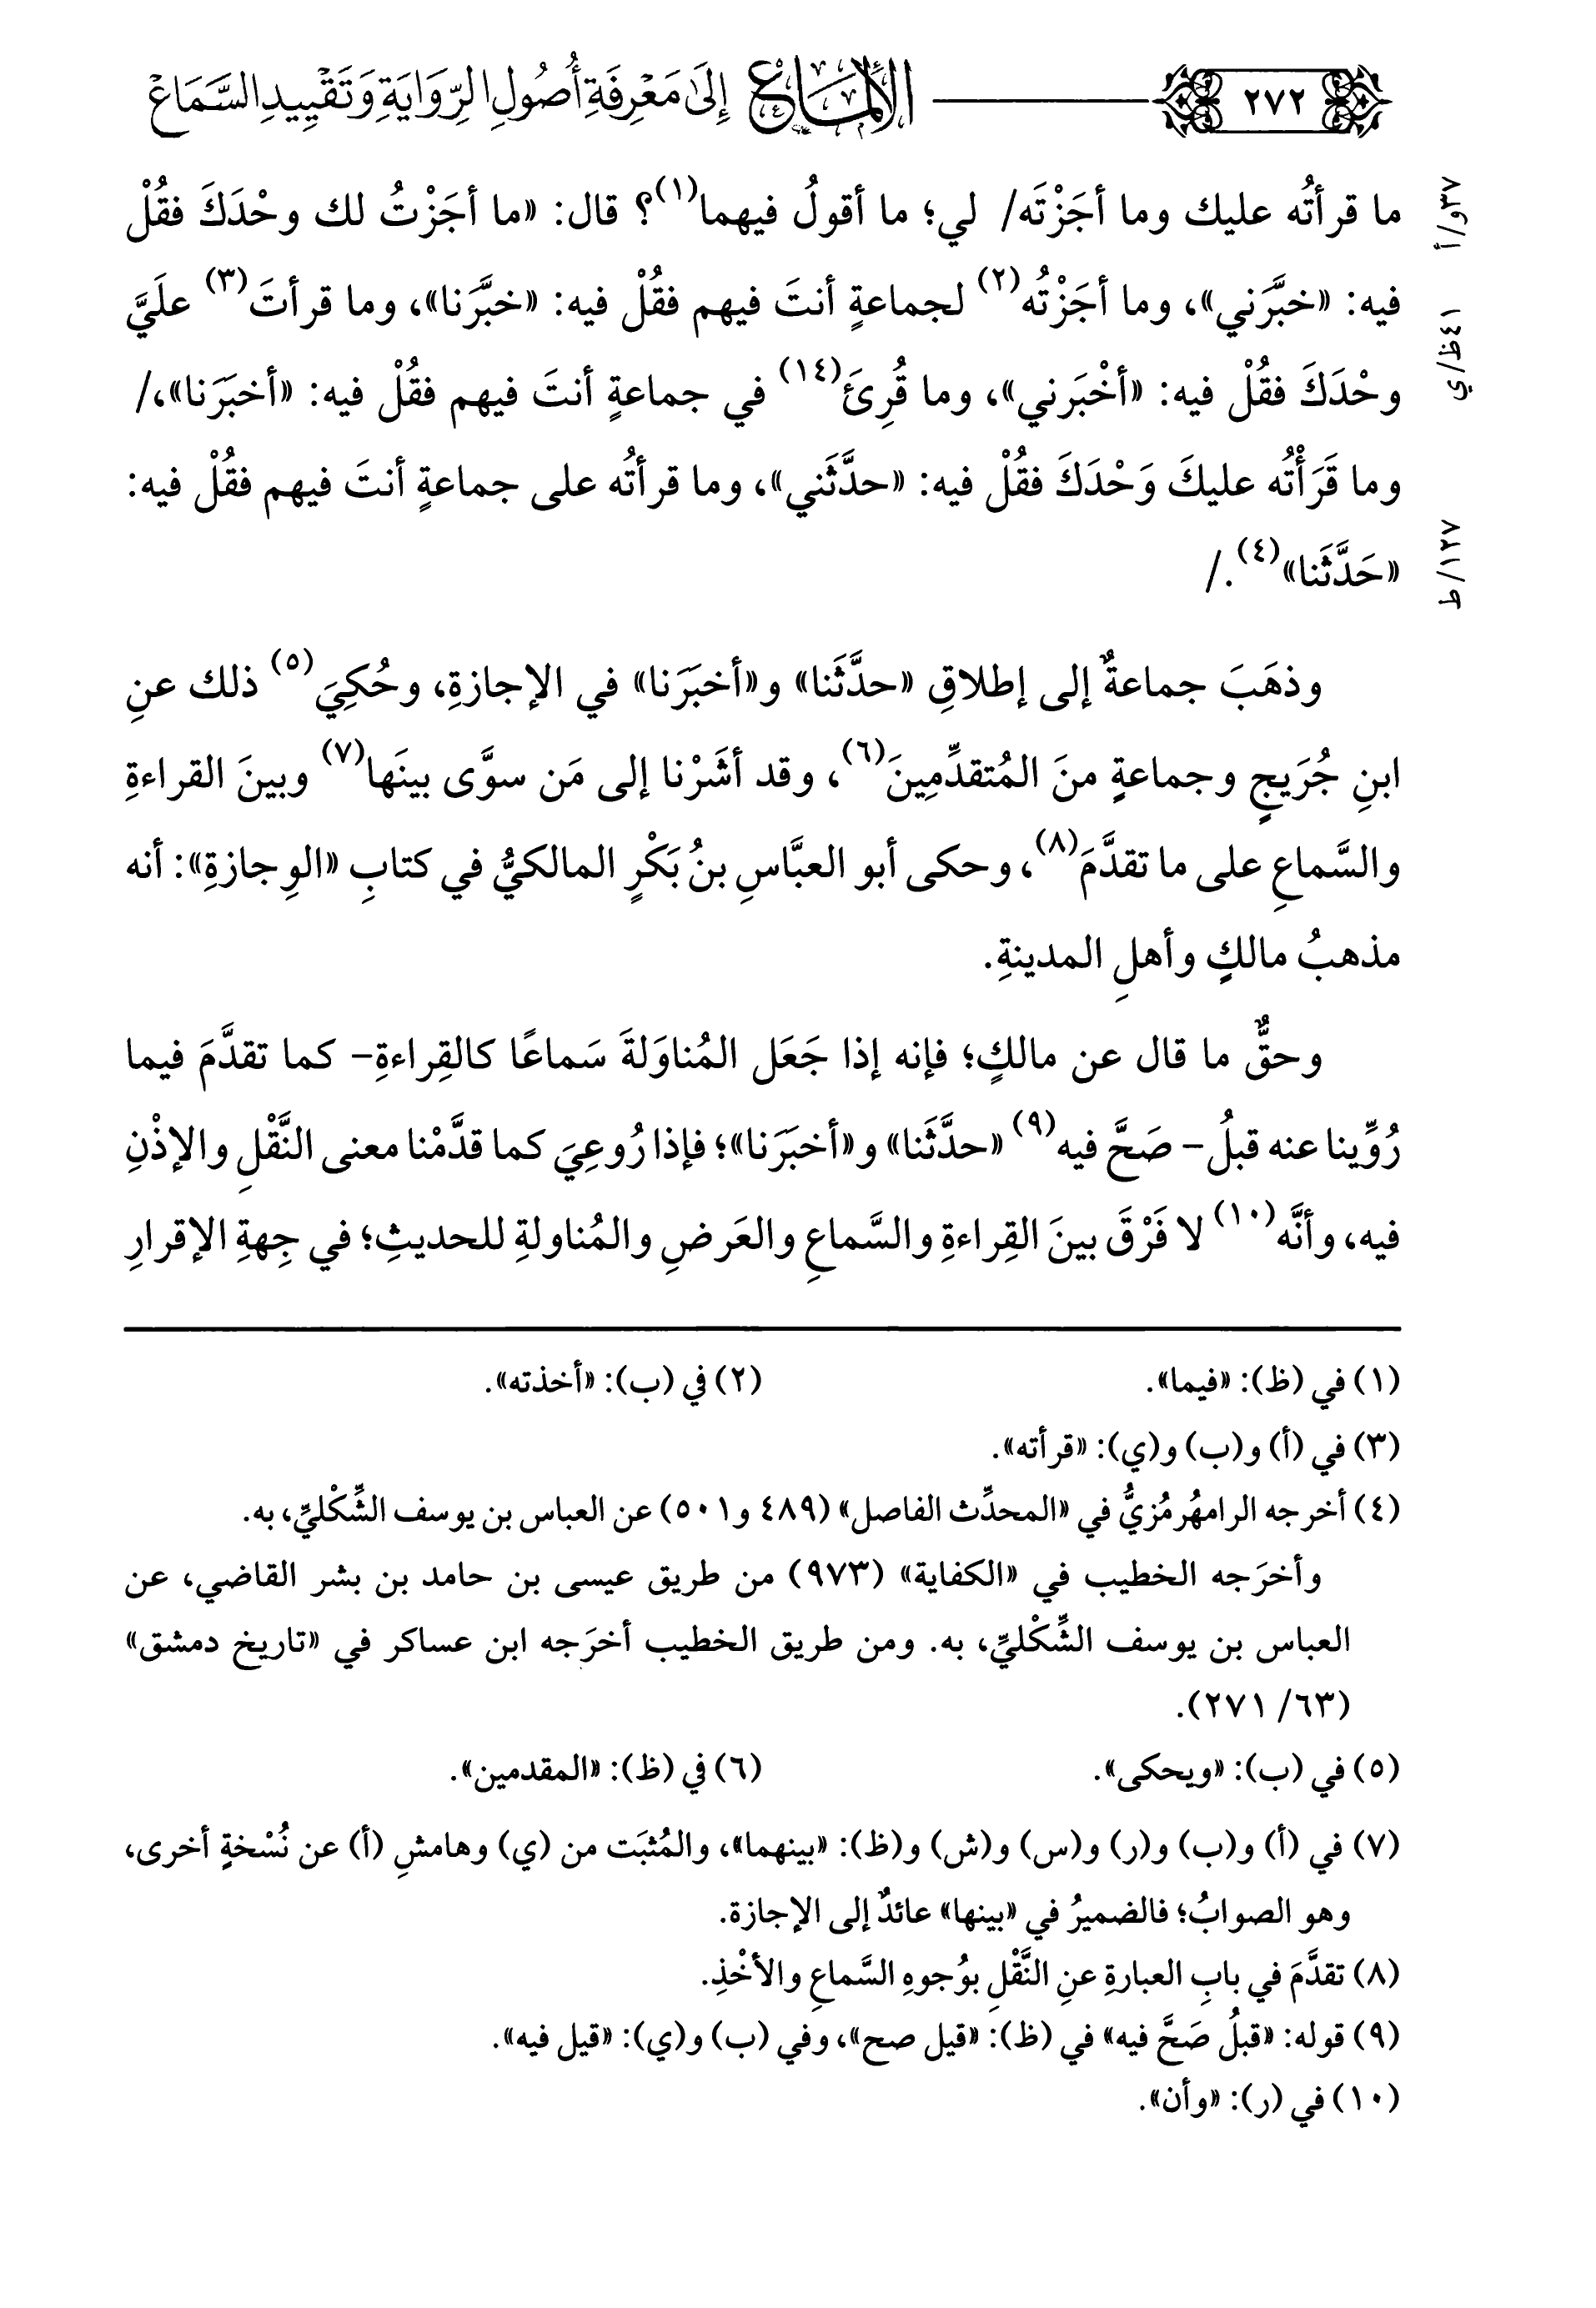 ٢٧٢ الإلماع إِلَىٰ مَعْرِفَةِ أُصُولِ الرِّوَايَةِ وَتَقْيِيدِ السَّمَاعْ
ما قرأتُه عليك وما أجَزْتَه/ لي؛ ما أقولُ فيهما(١)؟ قال: «ما أجَزْتُ لك وحْدَكَ فقُلْ
٣٧و/أ
فيه: «خبَّرَني»، وما أجَزْتُه(٢) لجماعةٍ أنتَ فيهم فقُلْ فيه: «خبَّرَنا»، وما قرأتَ(٣) علَيَّ
وحْدَكَ فقُلْ فيه: «أخْبَرني»، وما قُرِئَ(١٤) في جماعةٍ أنتَ فيهم فقُلْ فيه: «أخبَرَنا»،/
٤١ظ/ي
وما قَرَأْتُه عليكَ وَحْدَكَ فقُلْ فيه: «حدَّثَني»، وما قرأتُه على جماعةٍ أنتَ فيهم فقُلْ فيه:
«حَدَّثَنا»(٤)./
١٢٧/ط
وذهَبَ جماعةٌ إلى إطلاقِ «حدَّثَنا» و«أخبَرَنا» في الإجازةِ، وحُكِيَ(٥) ذلك عنِ
ابنِ جُرَيجٍ وجماعةٍ منَ المُتقدِّمِينَ(٦)، وقد أشَرْنا إلى مَن سوَّى بينَها(٧) وبينَ القراءةِ
والسَّماعِ على ما تقدَّمَ(٨)، وحكى أبو العبَّاسِ بنُ بَكْرٍ المالكيُّ في كتابِ «الوِجازةِ»: أنه
مذهبُ مالكٍ وأهلِ المدينةِ.
وحقٌّ ما قال عن مالكٍ؛ فإنه إذا جَعَل المُناوَلةَ سَماعًا كالقِراءةِ- كما تقدَّمَ فيما
رُوِّينا عنه قبلُ- صَحَّ فيه(٩) «حدَّثَنا» و«أخبَرَنا»؛ فإذا رُوعِيَ كما قدَّمْنا معنى النَّقْلِ والإذْنِ
فيه، وأنَّه(١٠) لا فَرْقَ بينَ القِراءةِ والسَّماعِ والعَرضِ والمُناولةِ للحديثِ؛ في جِهةِ الإقرارِ
(١) في (ظ): «فيما». (٢) في (ب): «أخذته».
(٣) في (أ) و(ب) و(ي): «قرأته».
(٤) أخرجه الرامهُرمُزيُّ في «المحدِّث الفاصل» (٤٨٩ و٥٠١) عن العباس بن يوسف الشِّكْليِّ، به.
وأخرَجه الخطيب في «الكفاية» (٩٧٣) من طريق عيسى بن حامد بن بشر القاضي، عن
العباس بن يوسف الشِّكْليِّ، به. ومن طريق الخطيب أخرَجه ابن عساكر في «تاريخ دمشق»
(٦٣/ ٢٧١).
(٥) في (ب): «ويحكى». (٦) في (ظ): «المقدمين».
(٧) في (أ) و(ب) و(ر) و(س) و(ش) و(ظ): «بينهما»، والمُثبَت من (ي) وهامشِ (أ) عن نُسْخةٍ أخرى،
وهو الصوابُ؛ فالضميرُ في «بينها» عائدٌ إلى الإجازة.
(٨) تقدَّمَ في بابِ العبارةِ عنِ النَّقْلِ بوُجوهِ السَّماعِ والأخْذِ.
(٩) قوله: «قبلُ صَحَّ فيه» في (ظ): «قيل صح»، وفي (ب) و(ي): «قيل فيه».
(١٠) في (ر): «وأن».